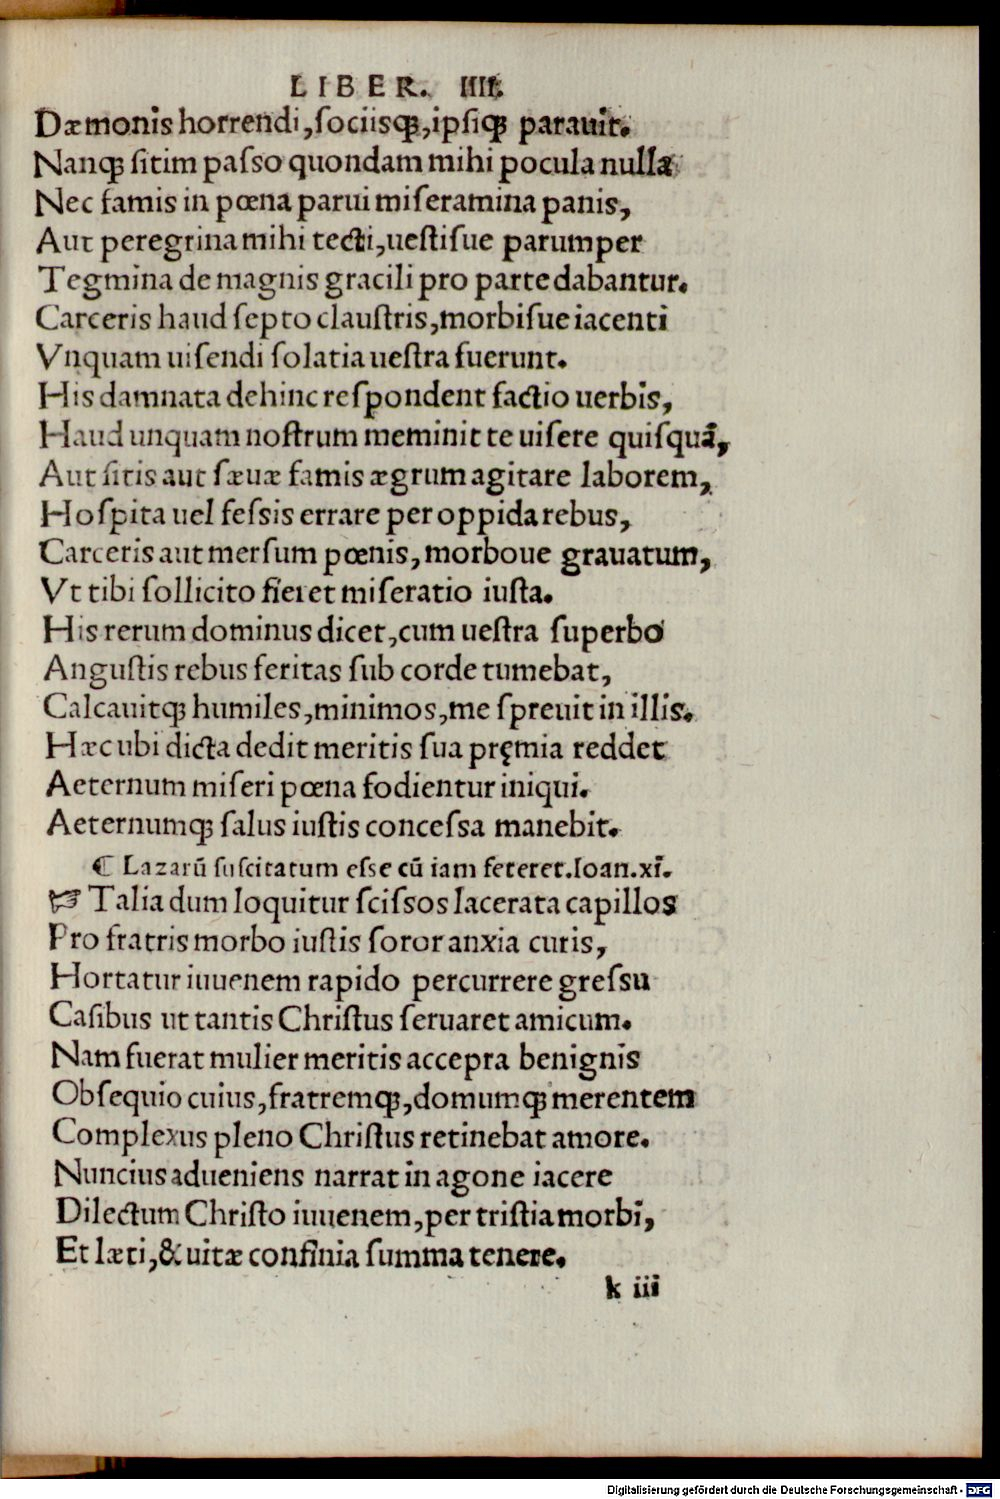 LIBER. IIII.
Dæmonis horrendi, ſociisꝗ, ipſiꝗ parauit.
Nanꝗ ſitim paſſo quondam mihi pocula nulla
Nec famis in pœna parui miſeramina panis,
Aut peregrina mihi tecti, ueſtiſue parumper
Tegmina de magnis gracili pro parte dabantur.
Carceris haud ſepto clauſtris, morbiſue iacenti
Vnquam uiſendi ſolatia ueſtra fuerunt.
His damnata dehinc reſpondent factio uerbis,
Haud unquam noſtrum meminit te uiſere quiſquã,
Aut ſitis aut ſæuæ famis ægrum agitare laborem,
Hoſpita uel feſſis errare per oppida rebus,
Carceris aut merſum pœnis, morboue grauatum,
Vt tibi ſollicito fieret miſeratio iuſta.
His rerum dominus dicet, cum ueſtra ſuperbo
Anguſtis rebus feritas ſub corde tumebat,
Calcauitꝗ humiles, minimos, me ſpreuit in illis.
Hæc ubi dicta dedit meritis ſua pręmia reddet
Aeternum miſeri pœna fodientur iniqui.
Aeternumꝗ ſalus iuſtis conceſſa manebit.
¶ Lazarũ ſuſcitatum eſſe cũ iam feteret. Ioan. xi.
☞ Talia dum loquitur ſciſſos lacerata capillos
Pro fratris morbo iuſtis ſoror anxia curis,
Hortatur iuuenem rapido percurrere greſſu
Caſibus ut tantis Chriſtus ſeruaret amicum.
Nam fuerat mulier meritis accepta benignis
Obſequio cuius, fratremꝗ, domumꝗ merentem
Complexus pleno Chriſtus retinebat amore.
Nuncius adueniens narrat in agone iacere
Dilectum Chriſto iuuenem, per triſtia morbi,
Et læti, & uitæ confinia ſumma tenere.
k iii
Digitalisierung gefördert durch die Deutsche Forschungsgemeinschaft - DFG